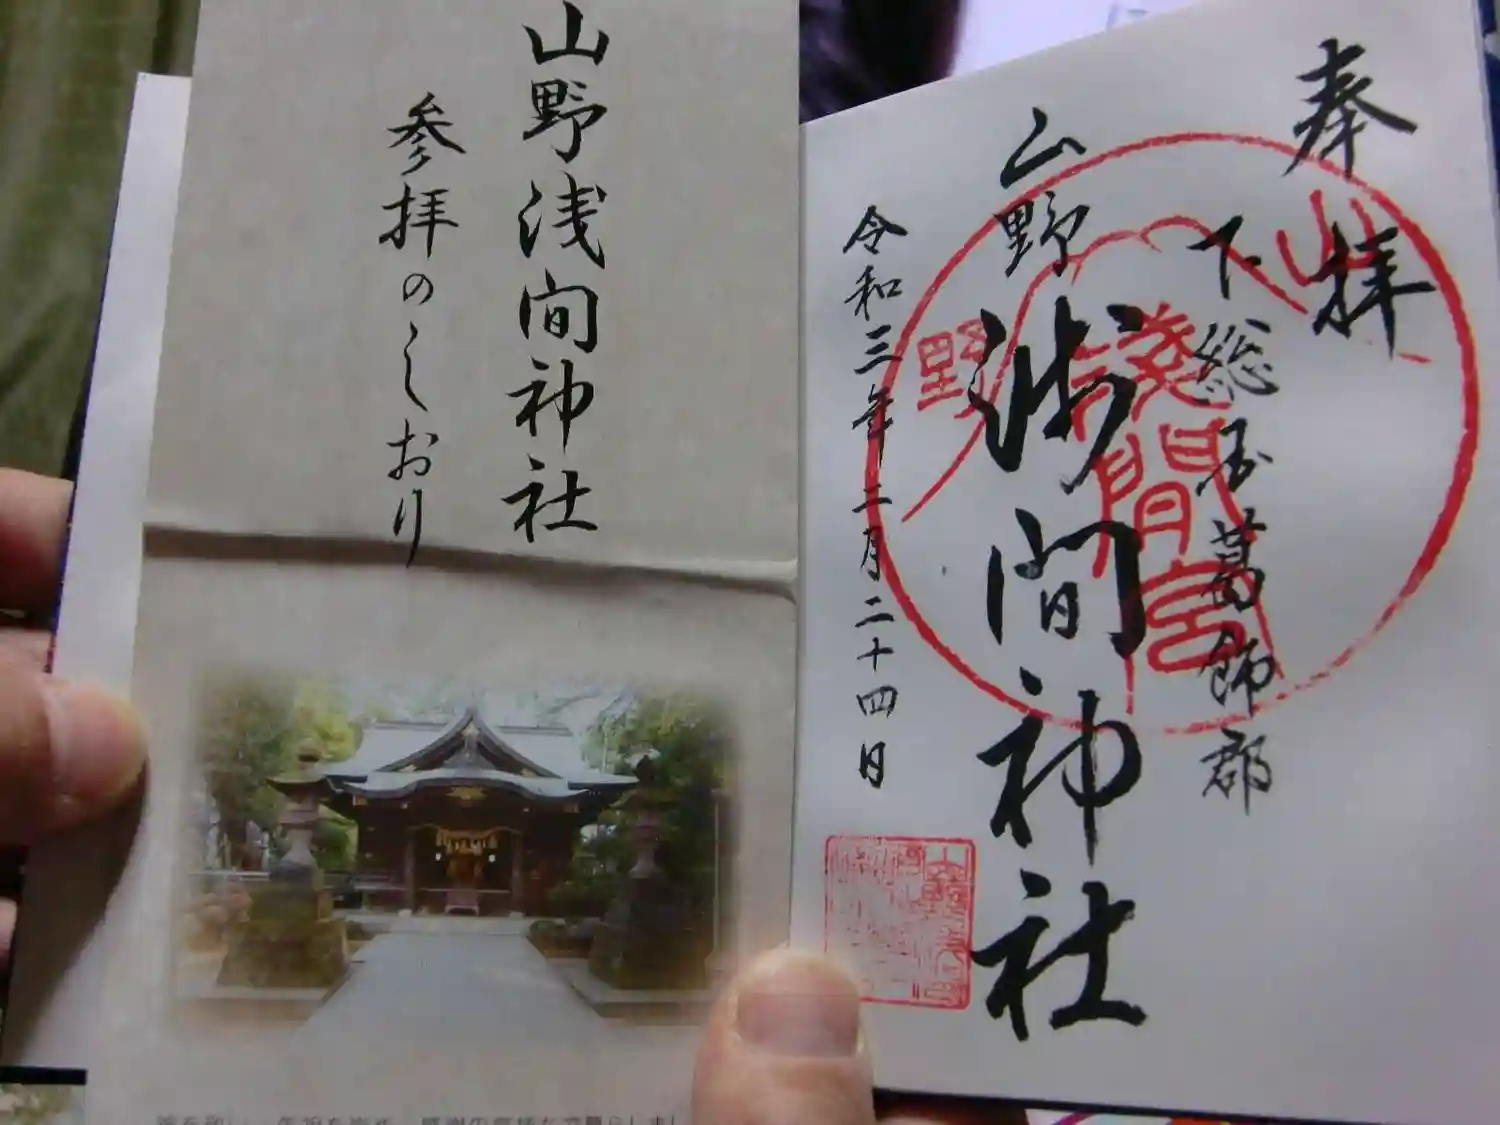 奉拝
下総国葛飾郡
山野浅間神社
令和三年二月二十四日
山野
淺間宮
山野浅間神社
参拝のしおり